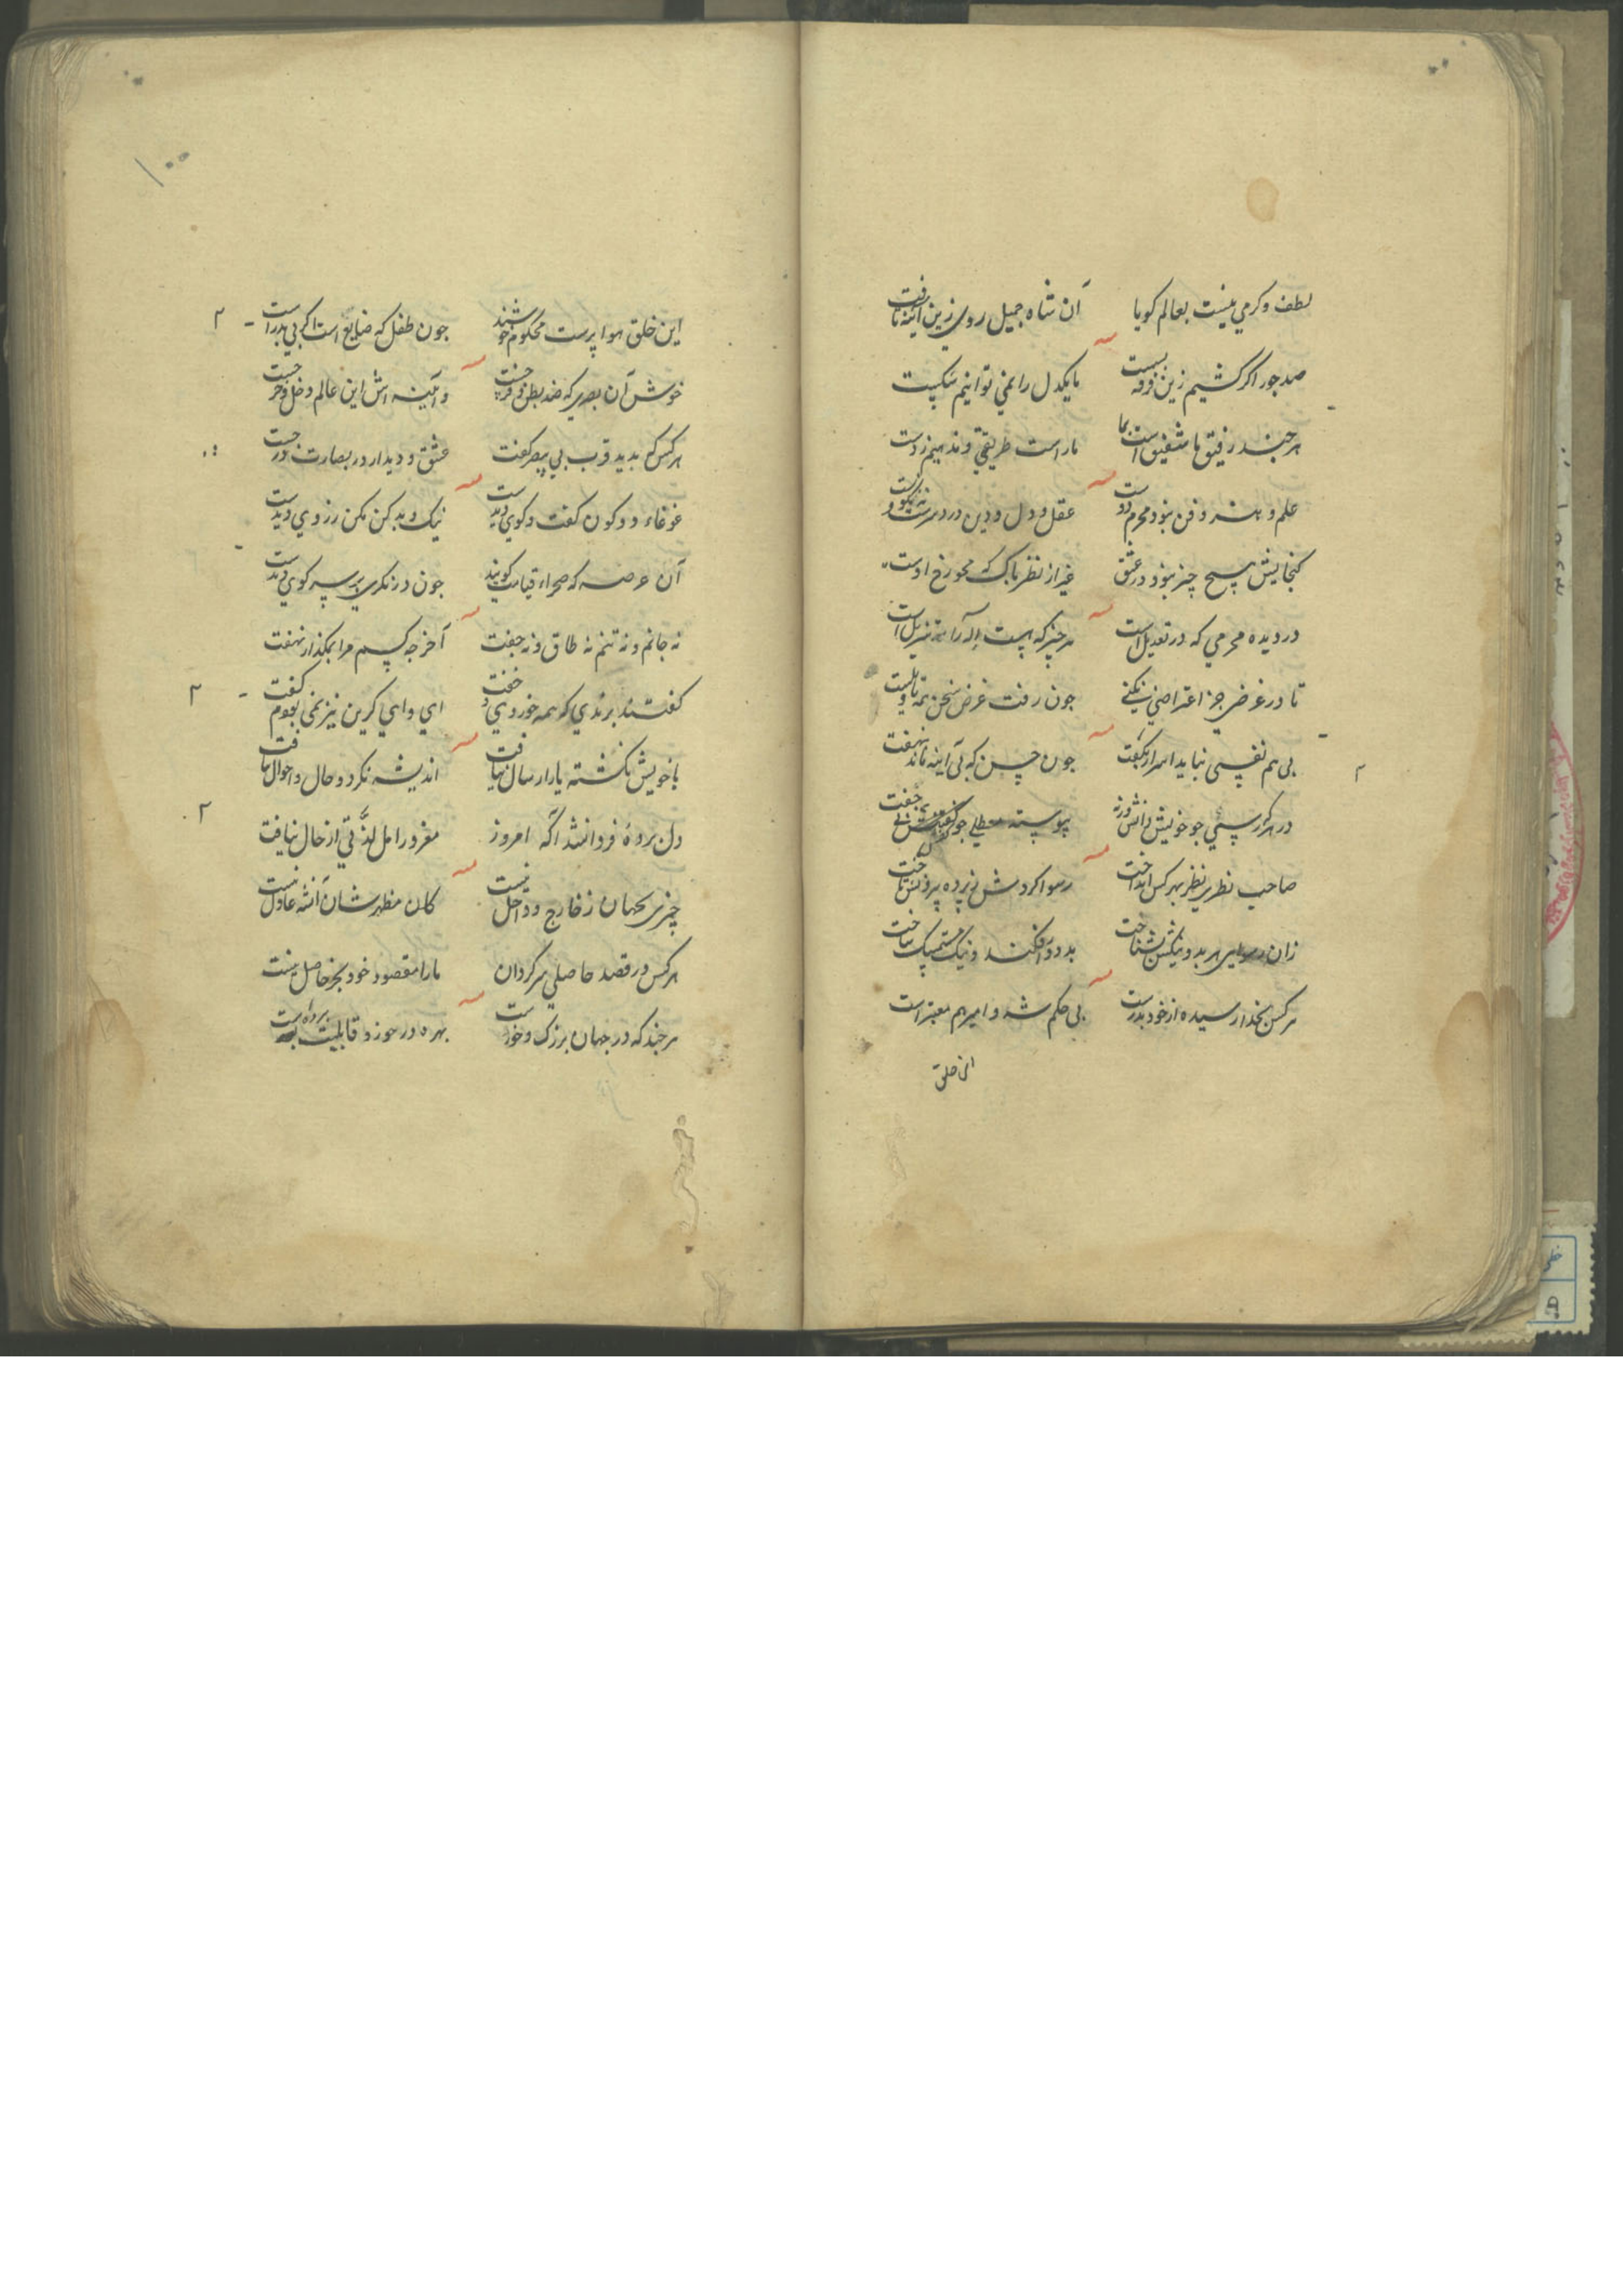 لطف و کرمی نیست بعالم کویا آن شاه جمیل روی زین آئینه تافت
صد جور اکر کشیم زین فرقه بسست ما یکدل را نمی توانیم شکست
هر چند رفیق ما شفیق است بما ما راست طریقتی و مذهبیم ز دست
علم و هنر و فن نبود محرم دوست عقل و دل و دین در دسرست نه نکوست
کنجایش هیچ چیز نبود در عشق غیر از نظر پاک که محو رخ اوست
در دیده محرمی که در تعدیل است هر چیز که هست
تا در غرضی جز اعتراضی نکنی جون رفت غرض سخن همه تاویلست
بی هم نفسی نباید اسرار بکفت جون حسن که بی آینه ماند نهفت
در هر کار سئی جو خویش دانش ورنه پیوسته
صاحب نظری نظر بهر کس انداخت رسوا کردش ز پرده بیرونش تاخت
زان هر بد و نیکش بشناخت بد دور افکند و نیک ساخت
هر کس بخدا رسیده از خود بدرست بی حکم شه و امیر هم معتبر است
این خلق
۱۰۰
این خلق هوا پرست محکوم خودند جون طفل که ضایع است اکر بی پدر است
خوش آن بصری که ضد بطن و فرجست و آیینه اش این عالم دخل و خرجست
هر کس که بدید قرب بی پیر کفت عشق و دیدار در بصارت درجست
غوغاء دو کون کفت و کوی دیدست نیک و بد کن مکن ز روی دیدست
آن عرصه که صحراء قیامت کویند جون در نکری بر سر کوی دیدست
نه جانم و نه تنم نه طاق و نه جفت آخر جه کسم مرا بمکذار نهفت
کفتند برندی که همه خوردی و خفت ای وای کرین نیز نمی بودم کفت
با خویش نکشته یار ارسال نیافت اندیشه نکرد و حال و احوال نیافت
دل بردهٔ فردا نشد اکه امروز مغرور امل لذّتی از حال نیافت
چیزی بجهان ز خارج و داخل نیست کان مظهر شان آن شه عادل نیست
هر کس در قصد حاصلی سرکردان ما را مقصود خود بجز حاصل نیست
هر جند که در جهان بزرک و خورد است بهره در حوزد قابلیت برده است